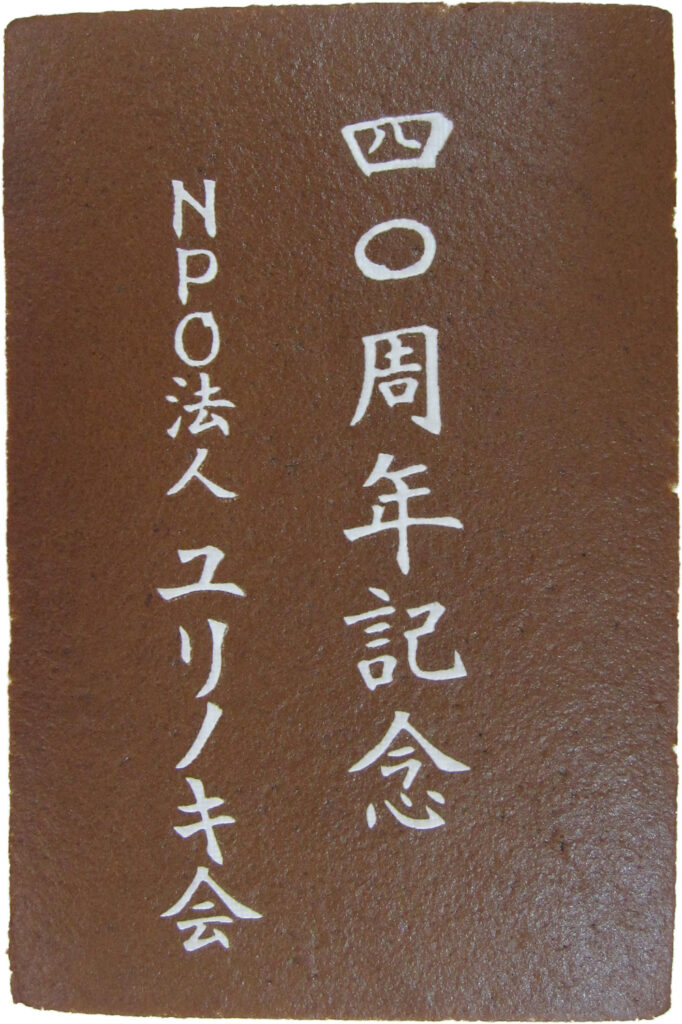 四〇周年記念
NPO法人 ユリノキ会